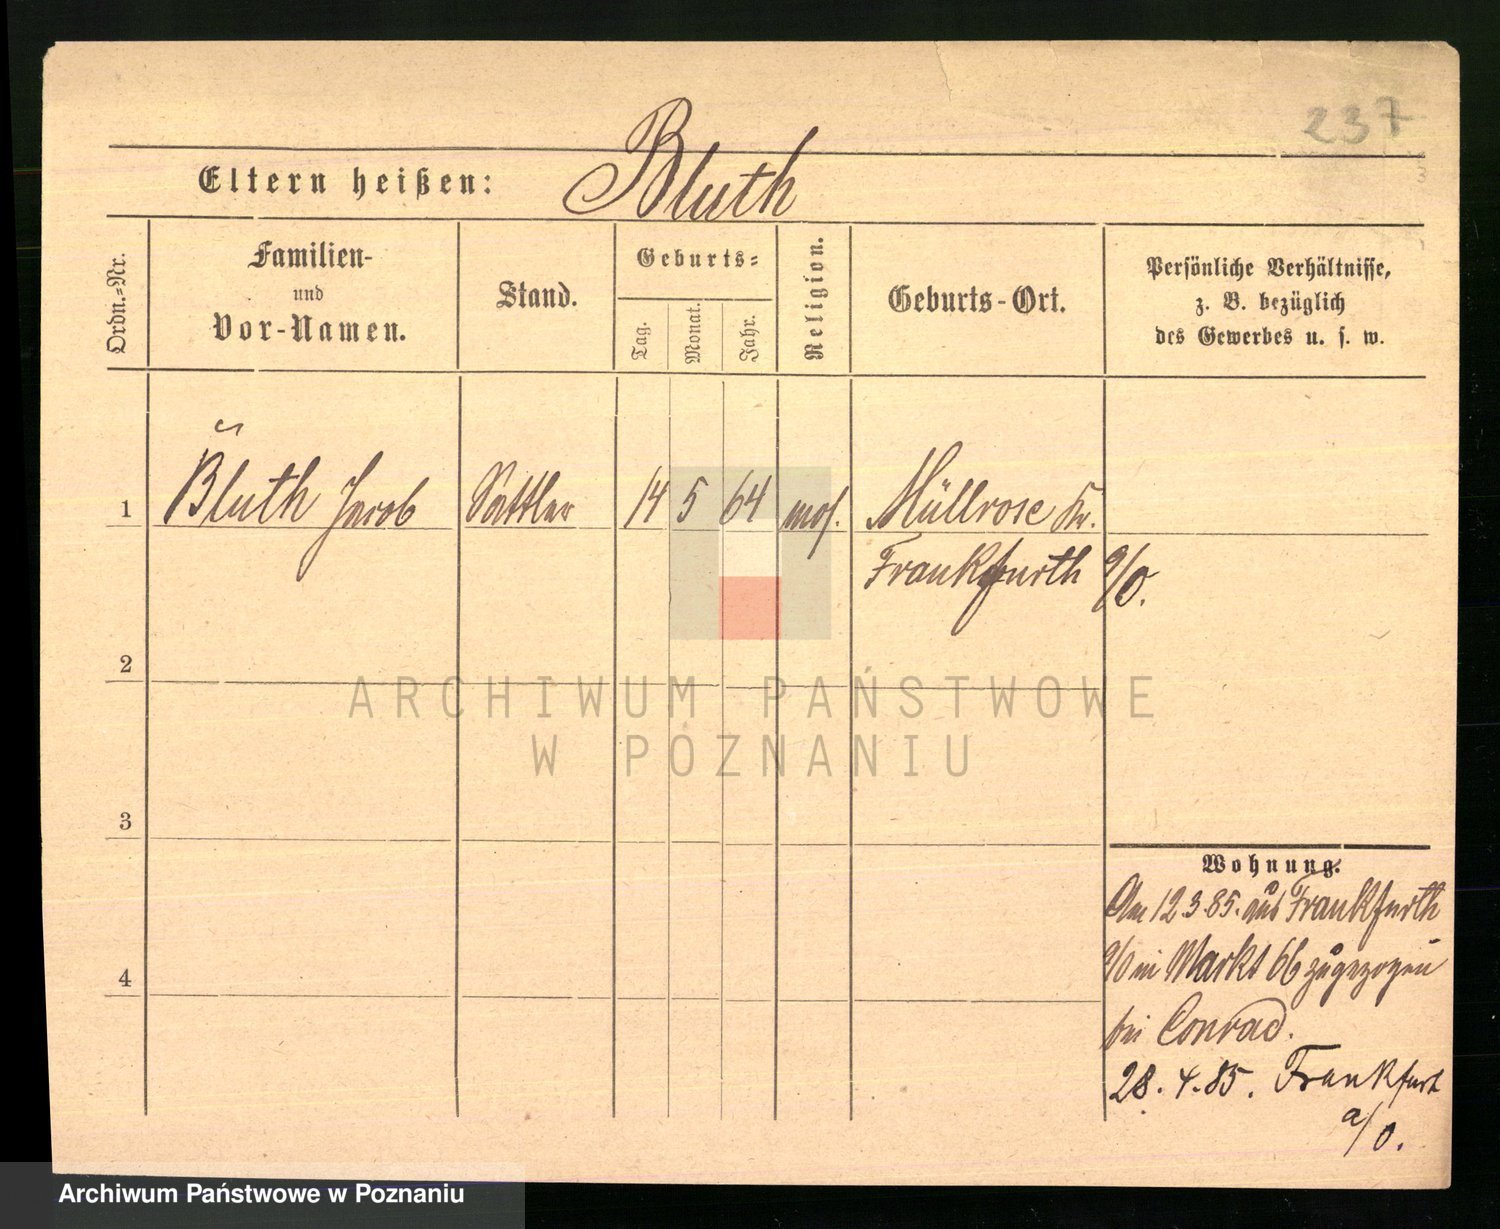 237
Eltern heißen: Bluth
Ordn.-Nr.
Familien-
und
Vor-Namen.
Stand.
Geburts-
Tag.
Monat.
Jahr.
Religion.
Geburts-Ort.
Persönliche Verhältnisse,
z. B. bezüglich
des Gewerbes u. s. w.
1 Bluth Jacob Sattler 14 5 64 mos. Müllrose Kr.
Frankfurth a/O.
2
ARCHIWUM PAŃSTWOWE
W POZNANIU
3
Wohnung.
Am 12.3.85. aus Frankfurth
a/O in Markt 66 zugezogen
4
bei Conrad.
28.4.85. Frankfurt
a/O.
Archiwum Państwowe w Poznaniu